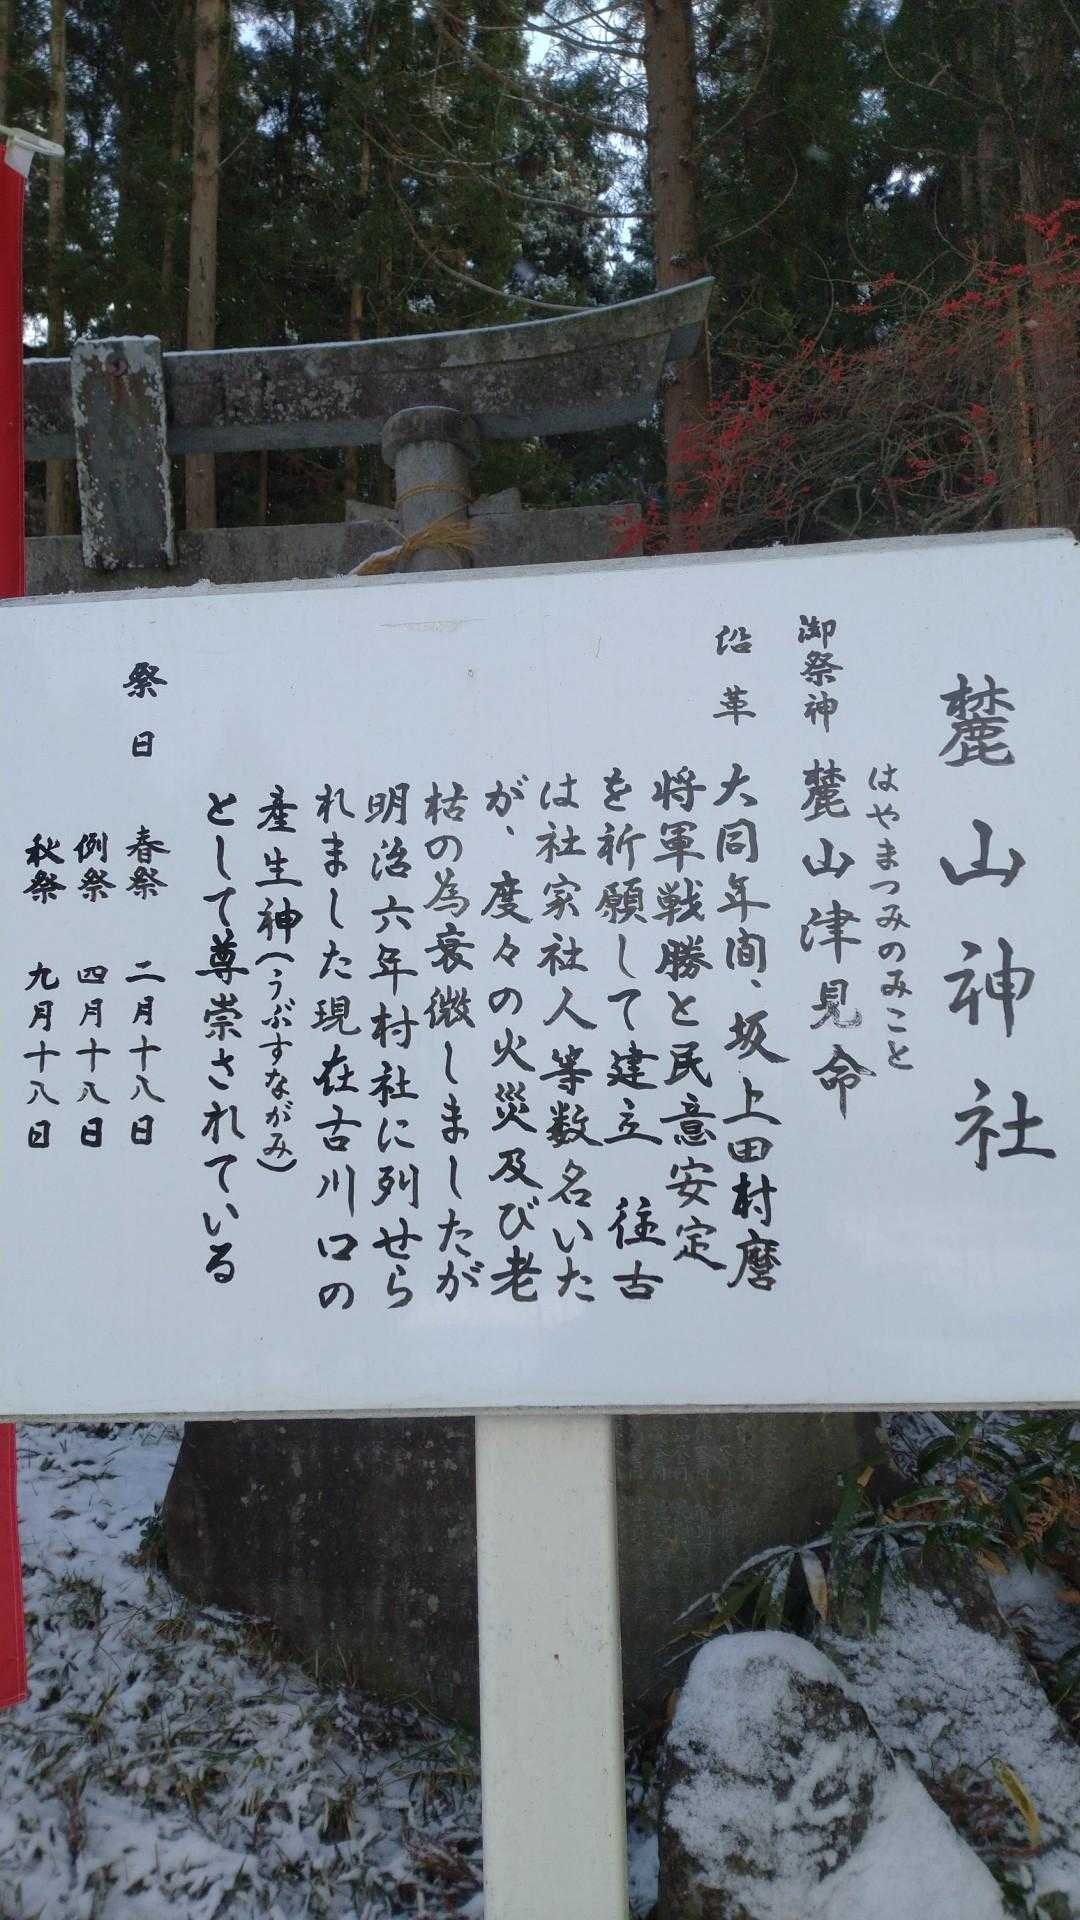 麓山神社
はやまつみのみこと
御祭神 麓山津見命
沿革 大同年間、坂上田村麿
将軍戦勝と民意安定
を祈願して建立 往古
は社家社人等数名いた
が、度々の火災及び老
枯の為衰微しましたが
明治六年村社に列せら
れました現在古川口の
産生神(うぶすながみ)
として尊崇されている
祭日 春祭 二月十八日
例祭 四月十八日
秋祭 九月十八日